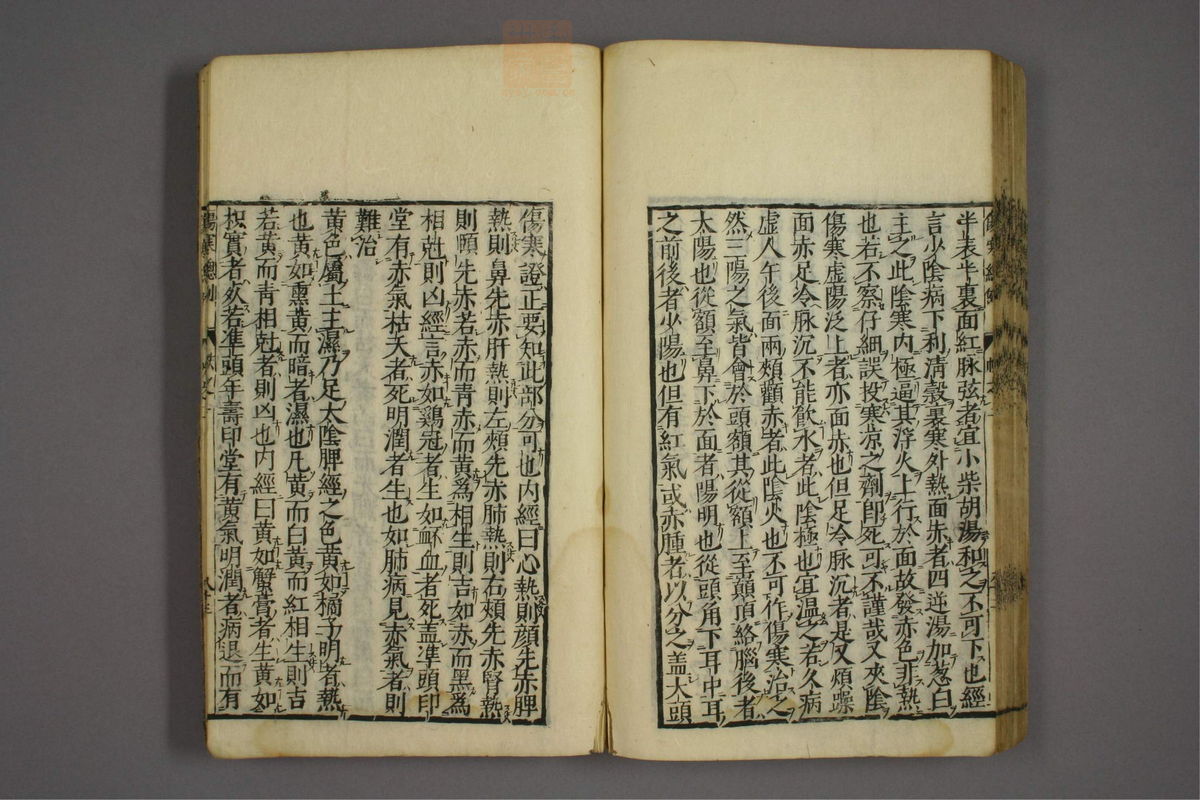 半表半裏面紅脉弦者宜小柴胡湯和之不可下也經
言少陰病下利淸穀裏寒外熱面赤者四逆湯加葱白
主之此陰寒内極逼其浮火上行於面故發赤色非熱
也若不察仔細誤投寒凉之劑卽死可不謹哉又夾陰
傷寒虚陽泛上者亦面赤也但足冷脉沉者是又煩躁
面赤足冷脉沉不能飮水者此陰極也宜温之若久病
虚人午後面兩頰顴赤者此陰火也不可作傷寒治之
然三陽之氣皆會於頭額其從額上至巓頂絡腦後者
太陽也從額至鼻下於面者陽明也從頭角下耳中耳
之前後者少陽也但有紅氣或赤腫者以分之盖大頭
傷寒證正要知此部分可也内經曰心熱則顔先赤脾
熱則鼻先赤肝熱則左頰先赤肺熱則右頰先赤腎熱
則頤先赤若赤而青赤而黄爲相生則吉如赤而黑爲
相尅則凶經言赤如鷄冠者生如衃血者死盖準頭印
堂有赤氣枯夭者死明潤者生也如肺病見赤氣者則
難治
黄色屬土主濕乃足太陰脾經之色黄如橘子明者熱
也黄如熏黄而暗者濕也凡黄而白黄而紅相生則吉
若黄而青相尅者則凶也内經曰黄如蟹膏者生黄如
枳實者死若準頭年壽印堂有黄氣明潤者病退而有
傷寒總